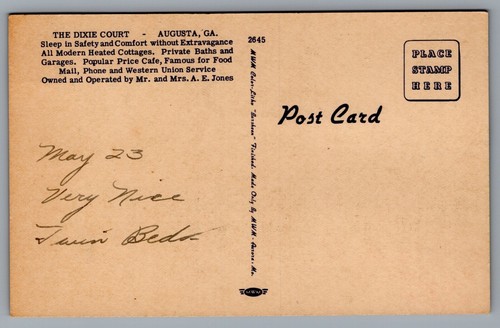 THE DIXIE COURT - AUGUSTA, GA.
Sleep in Safety and Comfort without Extravagance
All Modern Heated Cottages. Private Baths and
Garages. Popular Price Cafe, Famous for Food
Mail, Phone and Western Union Service
Owned and Operated by Mr. and Mrs. A. E. Jones
May 23
Very Nice
Twin Beds
2645
MWM Color-Litho "Lusterac" Finished. Made Only by MWM - Aurora - Mo.
MWM
Post Card
PLACE
STAMP
HERE